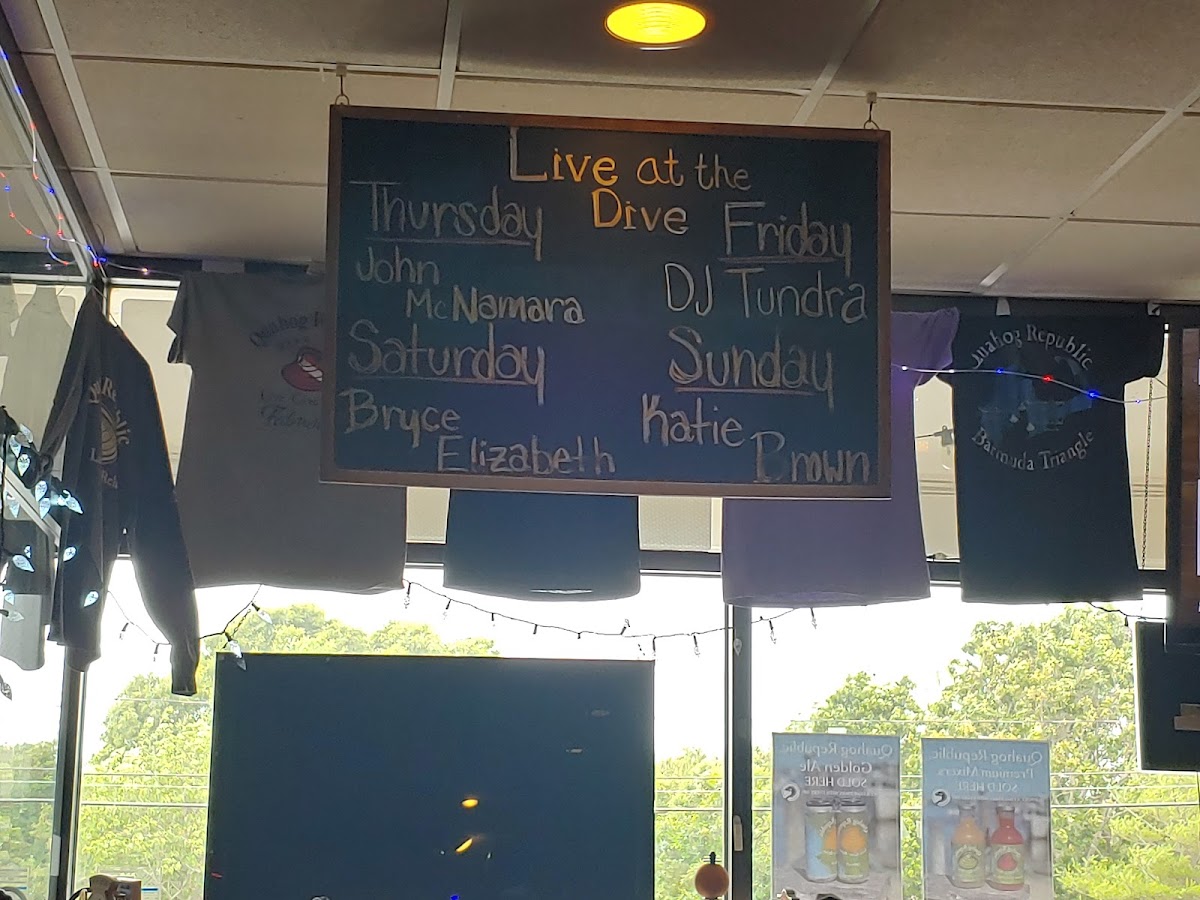 Live at the
Dive
Thursday
John
McNamara
Friday
DJ Tundra
Saturday
Bryce
Elizabeth
Sunday
Katie
Brown
Quahog Republic
Barmuda Triangle
Quahog Republic
Golden Ale
SOLD HERE
Quahog Republic
Premium Mixers
SOLD HERE